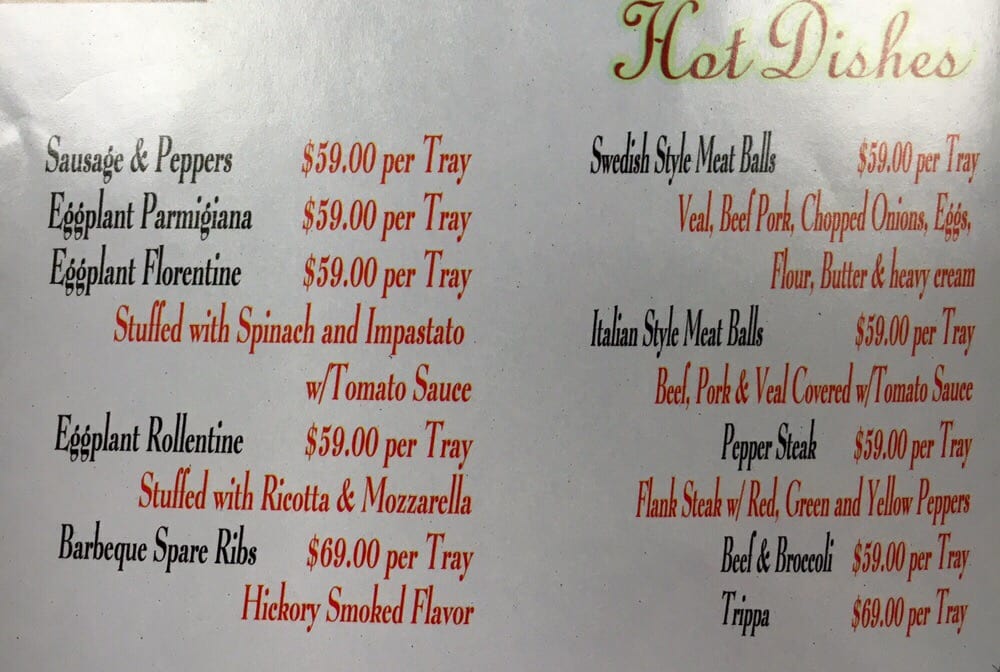 Hot Dishes
Sausage & Peppers $59.00 per Tray
Eggplant Parmigiana $59.00 per Tray
Eggplant Florentine $59.00 per Tray
Stuffed with Spinach and Impastato
w/Tomato Sauce
Eggplant Rollentine $59.00 per Tray
Stuffed with Ricotta & Mozzarella
Barbeque Spare Ribs $69.00 per Tray
Hickory Smoked Flavor
Swedish Style Meat Balls $59.00 per Tray
Veal, Beef Pork, Chopped Onions, Eggs,
Flour, Butter & heavy cream
Italian Style Meat Balls $59.00 per Tray
Beef, Pork & Veal Covered w/Tomato Sauce
Pepper Steak $59.00 per Tray
Flank Steak w/ Red, Green and Yellow Peppers
Beef & Broccoli $59.00 per Tray
Trippa $69.00 per Tray